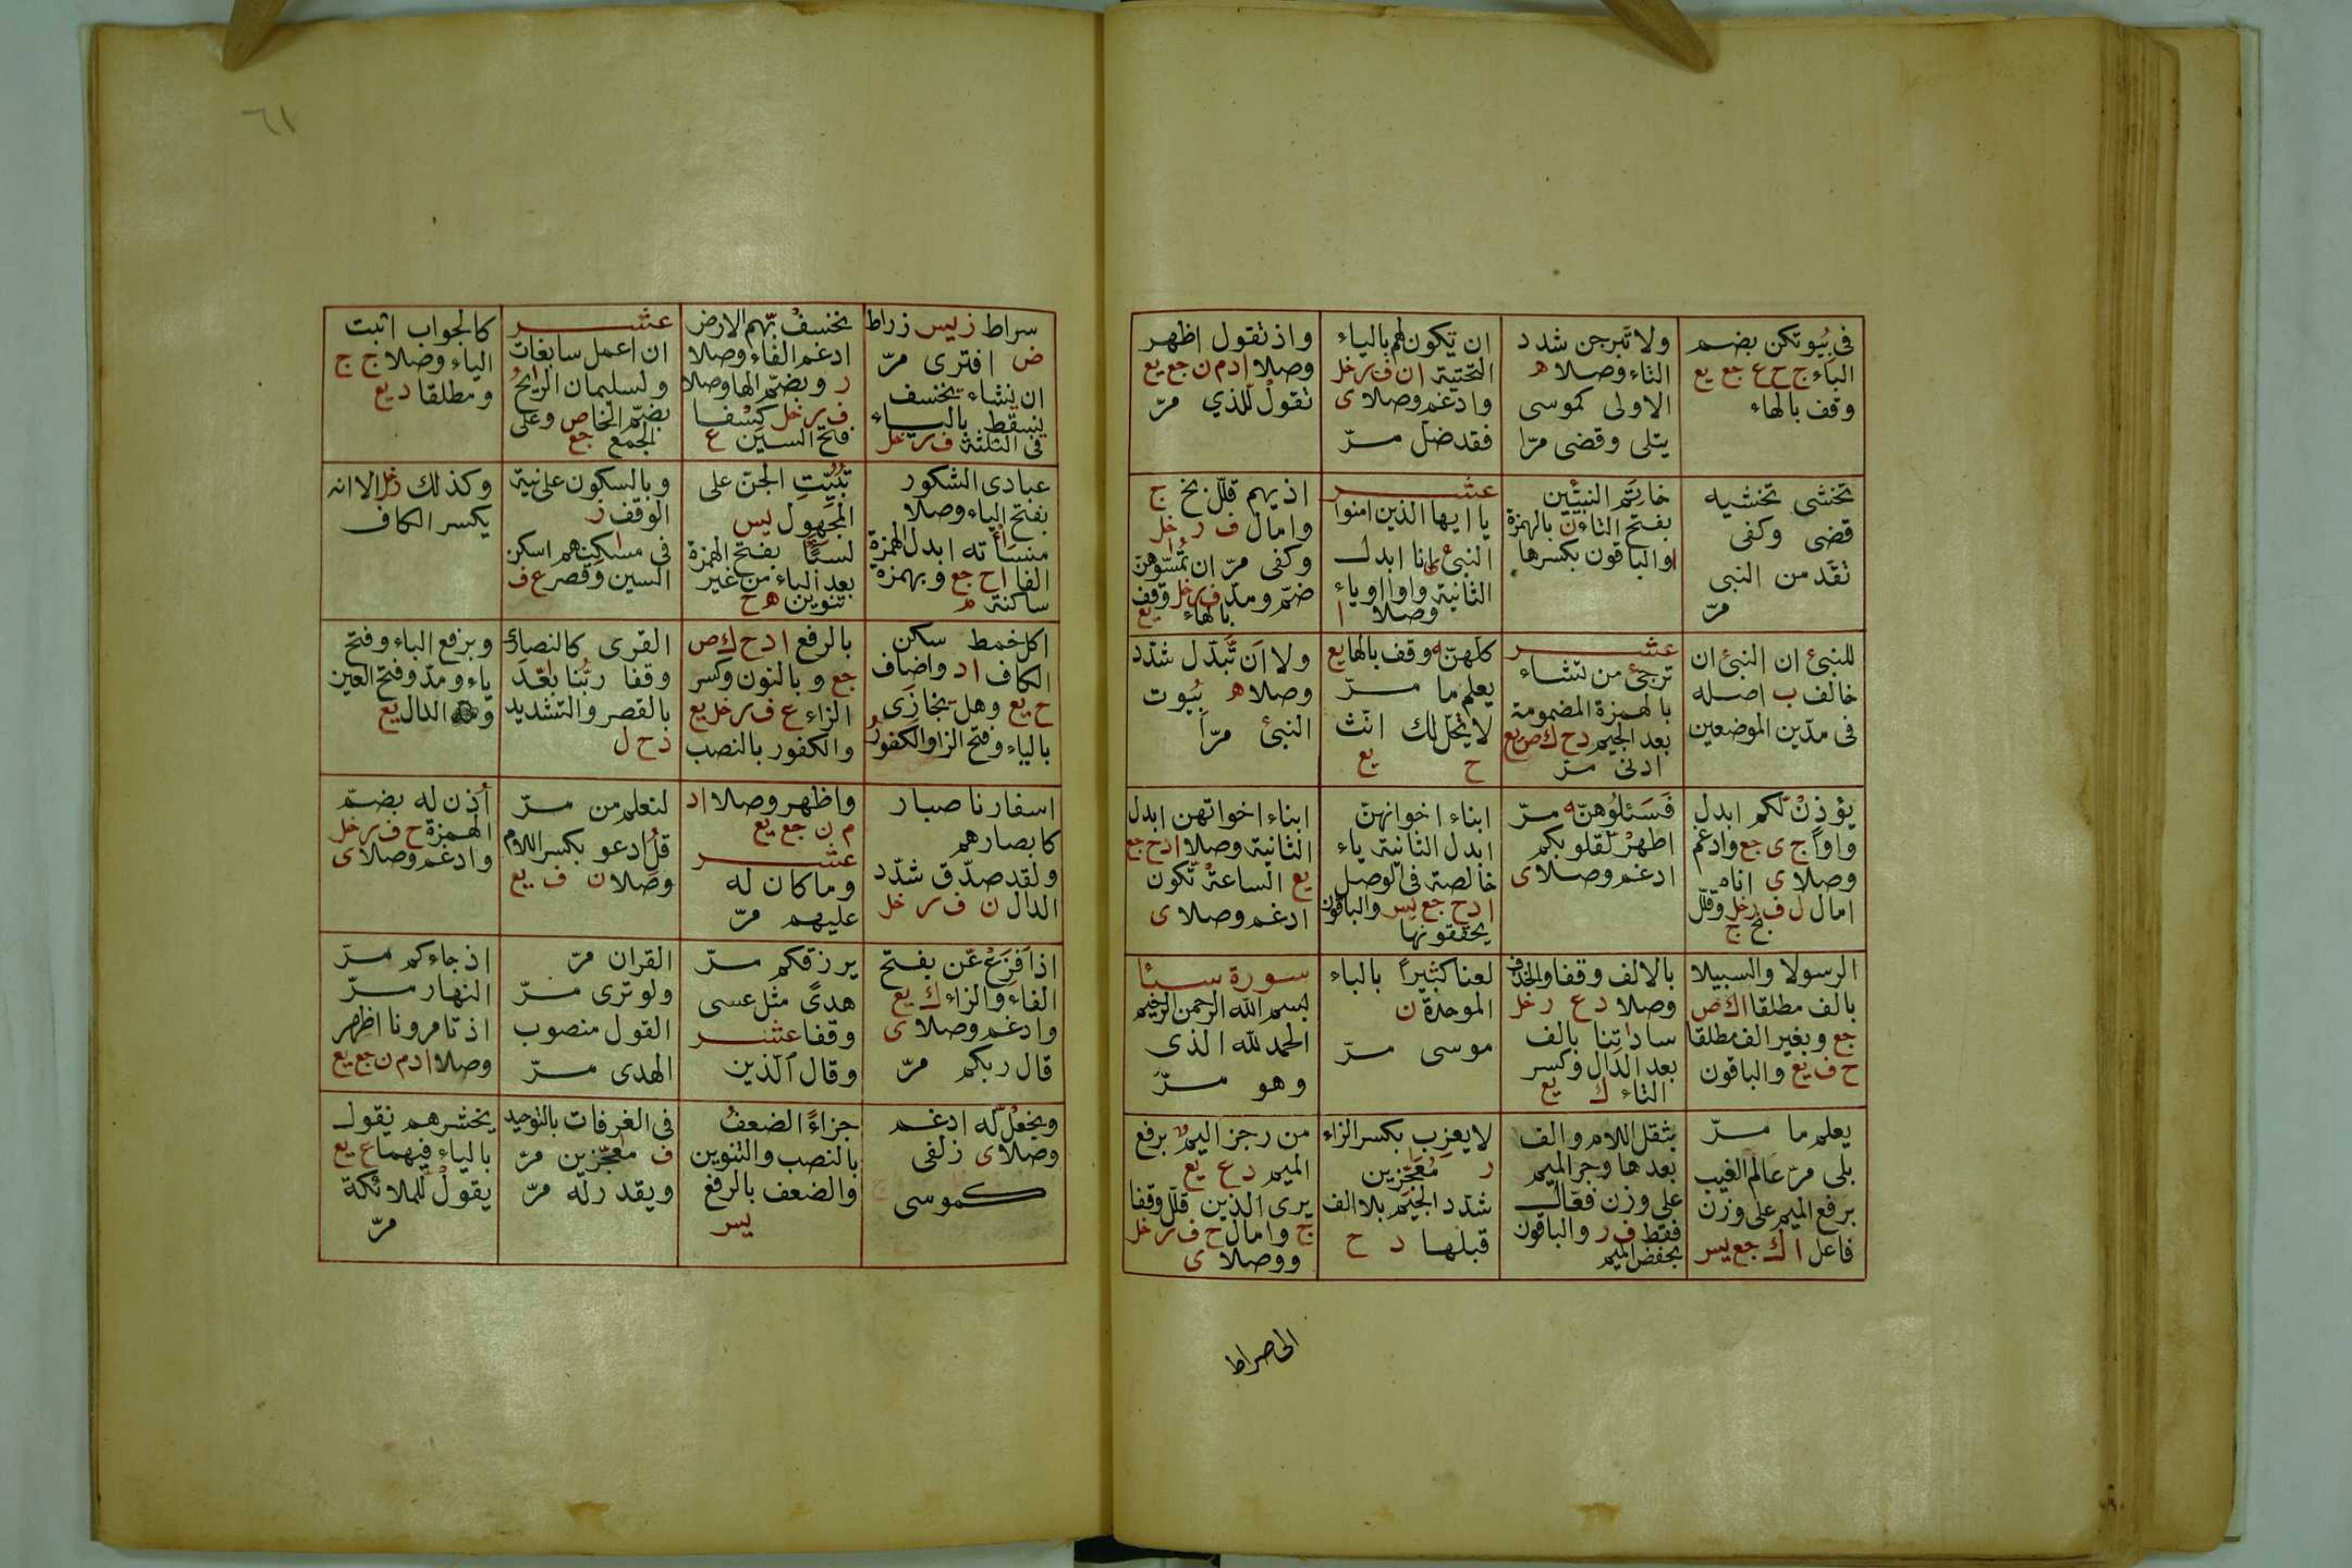 فى بُيُوتكن بضم
الباء ج ح ع جع يع
وقف بالهاء
ولا تبرجن شدد
التاء وصلا ه
الاولى كموسى
يتلى وقضى مرّا
ان تكون لهم بالياء
التحتية ان ف ر خل
وادغم وصلا ى
فقد ضل مرّ
واذ تقول اظهر
وصلا ا د م ن جع يع
تقول للذي مرّ
تخشى تخشيه
قضى وكفى
تقدمن النبى
مرّ
خاتم النبيّين
بفتح التاء ن بالهمزة
ا والباقون بكسرها
عشر
يا ايها الذين امنوا
النبئ انا ابدل
الثانية واوا او ياء
وصلا ا
اذيهم قلّل بخ ج
وامال ف ر خل
وكفى مرّ ان تمسّوهنّ
ضمّ ومدّ ف ر خل وقف
بالهاء يع
للنبئ ان النبئ ان
خالف ب اصله
فى مدّين الموضعين
عشر
ترجئ من تشاء
بالهمزة المضمومة
بعد الجيم د ح ك ص يع
ادنى مرّ
كلهنّ وقف بالها يع
يعلم ما مرّ
لا يحل لك انّث
ح يع
ولا ان تبدّل شدّد
وصلا ه بُيُوت
النبئ مرّا
يؤذن لكم ابدل
واوا ج ى جع وادغم
وصلا ى اناه
امال ل ف ر خل وقلّل
بخ ج
فَسَئلوُهنّ مرّ
اطهر لقلوبكم
ادغم وصلا ى
ابناء اخوانهنّ
ابدل الثانية ياء
خالصة فى الوصل
ا د ح جع يس والباقون
يحققونها
ابناء اخواتهن ابدل
الثانية وصلا ا د ح جع
يع الساعة تكون
ادغم وصلا ى
الرسولا والسبيلا
بالف مطلقا ا ك ص
جع وبغير الف مطلقا
ح ف يع والباقون
بالالف وقفا والحذف
وصلا د ع ر خل
ساداتنا بالف
بعد الدال وكسر
التاء ك يع
لعنا كثيراً بالباء
الموحدة ن
موسى مرّ
سورة سبأ
بسم الله الرحمن الرحيم
الحمد لله الذى
وهو مرّ
يعلم ما مرّ
بلى مرّ عالم الغيب
برفع الميم على وزن
فاعل ا ك جع يس
بثقل اللام والف
بعدها وجر الميم
على وزن فعّال
فقط ف ر والباقون
بخفض الميم
لا يعزب بكسر الزاء
ر مُعَجّزين
شدّد الجيم بلا الف
قبلها د ح
من رجز اليم برفع
الميم د ع يع
يرى الذين قلّل وقفا
ج وامال ح ف ر خل
ووصلا ى
الى صراط
٦١
سراط ز يس زراط
ض افترى مرّ
ان نشاء نخسف
نسقط بالياء
فى الثلثة ف ر خل
نخسف بهم الارض
ادغم الفاء وصلا
ر وبضمّ الها وصلا
ف ر خل كِسَفا
فتح السين ع
عشر
ان اعمل سابغات
ولسليمان الريح
بضمّ الخا ص وعلى
الجمع جع
كالجواب اثبت
الياء وصلا ج ح
ومطلقا د يع
عبادى الشكور
بفتح الياء وصلا
منسأته ابدل الهمزة
الفا ا ح جع وبهمزة
ساكنة م
تبُيِّتِ الجنّ على
المجهول يس
لسبَأ بفتح الهمزة
بعد الباء من غير
تنوين ه ح
وبالسكون على نية
الوقف ز
فى مسكنهم اسكن
السين وقصر ع ف
وكذلك ر خل الا انه
يكسر الكاف
اكل خمط سكن
الكاف ا د واضاف
ح يع وهل نجازَى
بالياء وفتح الزا والكفورُ
بالرفع ا د ح ك ص
جع وبالنون وكسر
الزاء ع ف ر خل يع
والكفور بالنصب
القرى كالنصارى
وقفا ربّنا بعّد
بالقصر والتشديد
د ح ل
وبرفع الباء وفتح
ياء ومدّ وفتح العين
الدال يع
اسفارنا صبار
كابصارهم
ولقد صدّق شدّد
الدال ن ف ر خل
واظهر وصلا ا د
م ن جع يع
عشر
وما كان له
عليهم مرّ
لنعلم من مرّ
قل ادعو بكسر اللام
وصلا ن ف يع
أذن له بضمّ
الهمزة ح ف ر خل
وادغم وصلا ى
اذا فَزَّعَ عّن بفتح
الفاء والزاء ك يع
وادغم وصلا ى
قال ربكم مرّ
يرزقكم مرّ
هدىً مثل عسى
وقفا عشر
وقال الّذين
القران مرّ
ولو ترى مرّ
القول منصوب
الهدى مرّ
اذ جاءكم مرّ
النهار مرّ
اذ تامروننا اظهر
وصلا ا د م ن جع يع
ويجعل له ادغم
وصلا ى زلفى
كموسى
جزاءً الضعفُ
بالنصب والتنوين
والضعف بالرفع
يس
فى الغرفات بالتوحيد
ف معجّزين مرّ
ويقدر له مرّ
يحشرهم نقول
بالياء فيهما ع يع
يقول للملائكة
مرّ